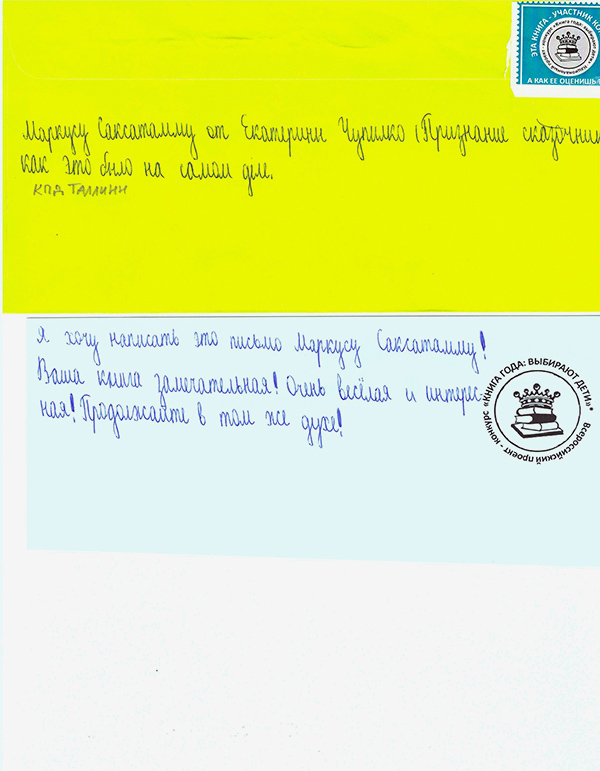 ЭТА КНИГА - УЧАСТНИК КО
«Книга года: выбирают дети»
А КАК ЕЕ ОЦЕНИШЬ
Маркусу Саксатамму от Екатерини Чупилко (Признание сказочник
как это было на самом діле.
КПД ТАЛЛИНН
Я хочу написать это письмо Маркусу Саксатамму!
Ваша книга замечательная! Очень весёлая и интерес-
ная! Продолжайте в том же духе!
«КНИГА ГОДА: ВЫБИРАЮТ ДЕТИ»*
Всероссийский проект - конкурс